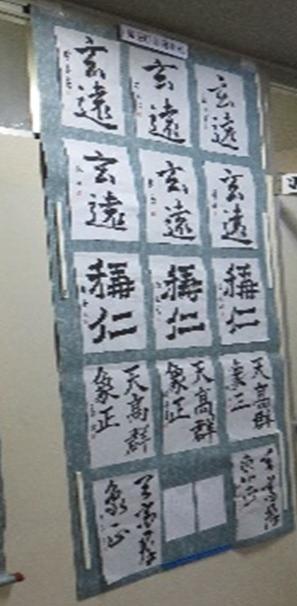 玄遠
玄遠
玄遠
玄遠
玄遠
玄遠
積仁
積仁
積仁
天高群
象正
天高群
象正
天高群
象正
天高群
象正
天高群
象正